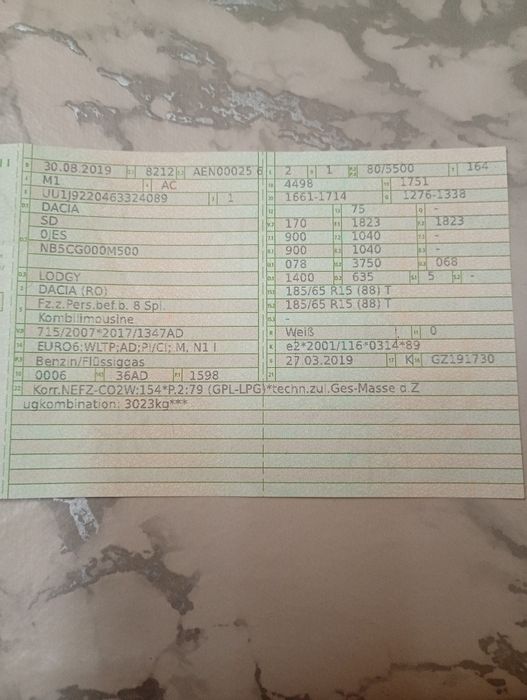 30.08.2019 8212 AEN00025 6
M1 AC
UU1J9220463324089 1
DACIA
SD
0JES
NB5CG000M500
LODGY
DACIA (RO)
Fz.z.Pers.bef.b. 8 Spl.
Kombilimousine
715/2007*2017/1347AD
EURO6;WLTP;AD;PI/CI; M, N1 I
Benzin/Flüssiggas
0006 36AD 1598
2 1 80/5500 164
4498 1751
1661-1714 1276-1338
75 -
170 1823 1823
900 1040 -
900 1040 -
078 3750 068
1400 635 5 -
185/65 R15 (88) T
185/65 R15 (88) T
-
Weiß 0
e2*2001/116*0314*89
27.03.2019 K GZ191730
Korr.NEFZ-CO2W:154*P.2:79 (GPL-LPG)*techn.zul.Ges-Masse d.Z
ugkombination: 3023kg***